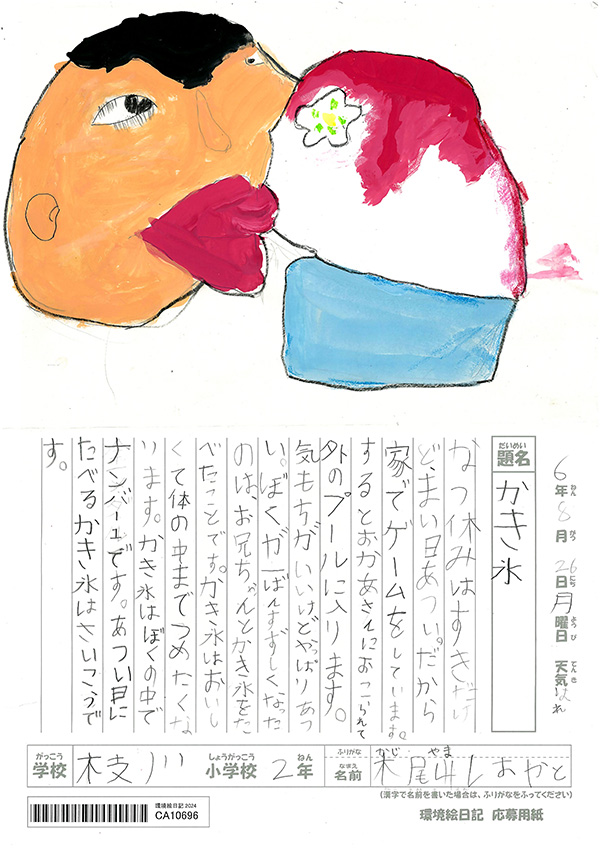 6年8月26日月曜日 天気はれ
ねん がつ にち ようび てんき
だいめい
題名 かき氷
なつ休みはすきだけ
ど、まい日あつい。だから
家でゲームをしています。
するとおかあさんにおこられて
外のプールに入ります。
気もちがいいけどやっぱりあつ
い。ぼくが一ばんすずしくなった
のは、お兄ちゃんとかき氷をた
べたことです。かき氷はおいし
くて体の中までつめたくな
ります。かき氷はぼくの中で
ナンバー1です。あつい日に
たべるかき氷はさいこうで
す。
がっこう しょうがっこう ねん
学校 枝川 小学校 2年
ふりがな かじ やま
なまえ
名前
(漢字で名前を書いた場合は、ふりがなをふってください)
環境絵日記 2024
CA10696
環境絵日記 応募用紙